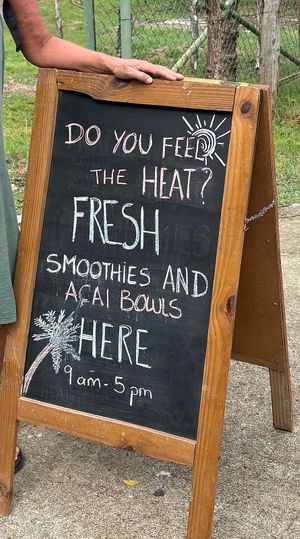 DO YOU FEEL
THE HEAT?
FRESH
SMOOTHIES AND
ACAI BOWLS
HERE
9am-5pm